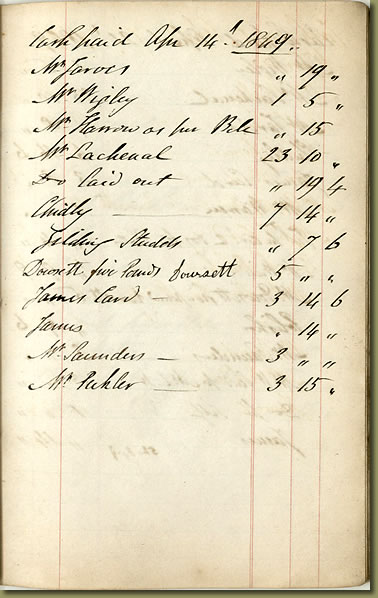 Cash paid Apr 14th 1849
Mr Jarves " 19 "
Mr Wigley 1 5 "
Mr Harrow as per Bill " 15
Mr Lachenal 23 10 "
Do laid out " 19 4
Chidly 7 14 "
Studds " 7 6
Dowsett five Pounds Doursett 5 " "
James Card 3 14 6
James " 14 "
Mr Saunders 3 " "
Mr Pichler 3 15 "